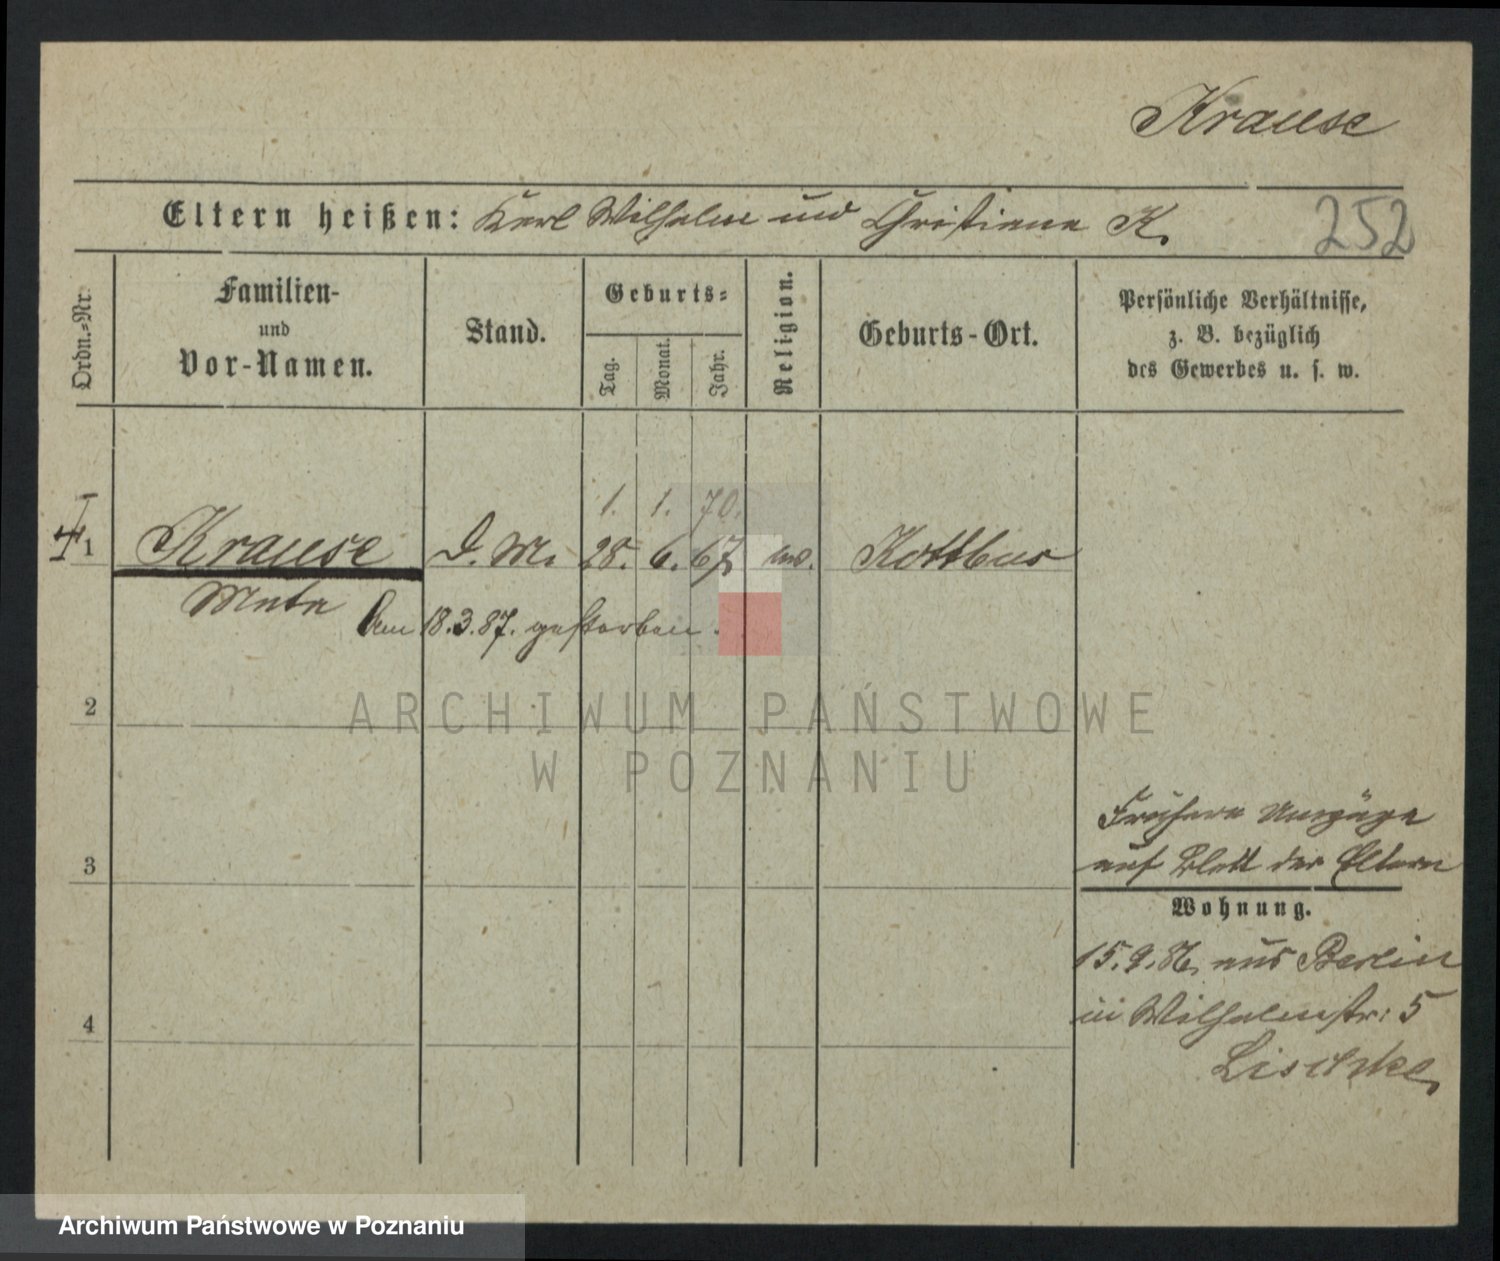 Krause
Eltern heißen: Karl Wilhelm und Christiane K.
252
Ordn.=Nr.
Familien-
und
Vor-Namen.
Stand.
Geburts=
Tag.
Monat.
Jahr.
Religion.
Geburts-Ort.
Persönliche Verhältnisse,
z. B. bezüglich
des Gewerbes u. s. w.
1. 1. 70.
1 Krause D. M. 28. 6. 67. Kottbus
Meta
Am 18.3.87. gestorben.
2
ARCHIWUM PAŃSTWOWE
W POZNANIU
Frühere Umzüge
3
auf Blatt der Eltern
Wohnung.
15.9.86. aus Berlin
in Wilhelmstr: 5
4
Lischke
Archiwum Państwowe w Poznaniu